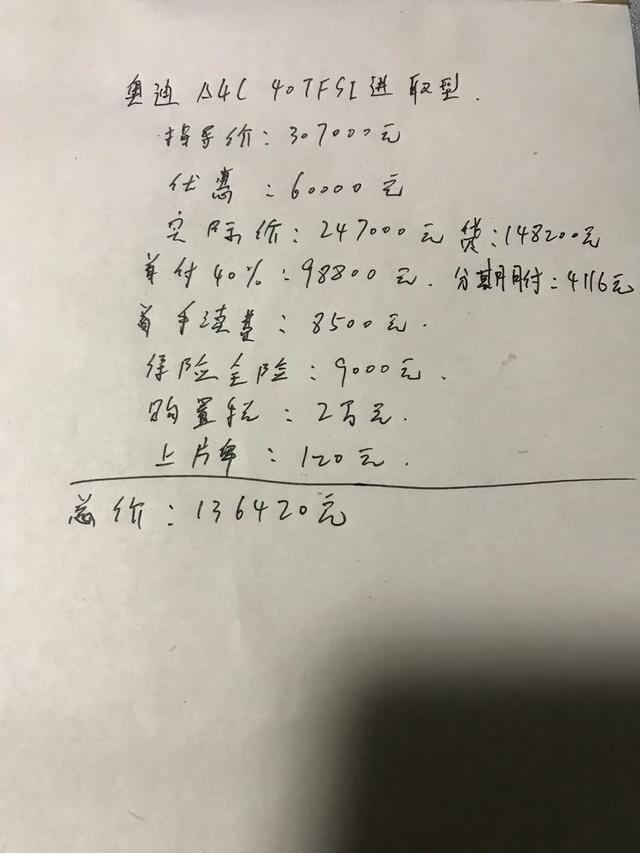 奥迪 A4L 40TFSI进取型.
指导价:307000元
优惠:60000元
实际价:247000元 贷:148200元
首付40%:98800元. 分期月付:4116元
手续费:8500元.
保险全险:9000元.
购置税:2万元.
上片车:120元.
总价:136420元